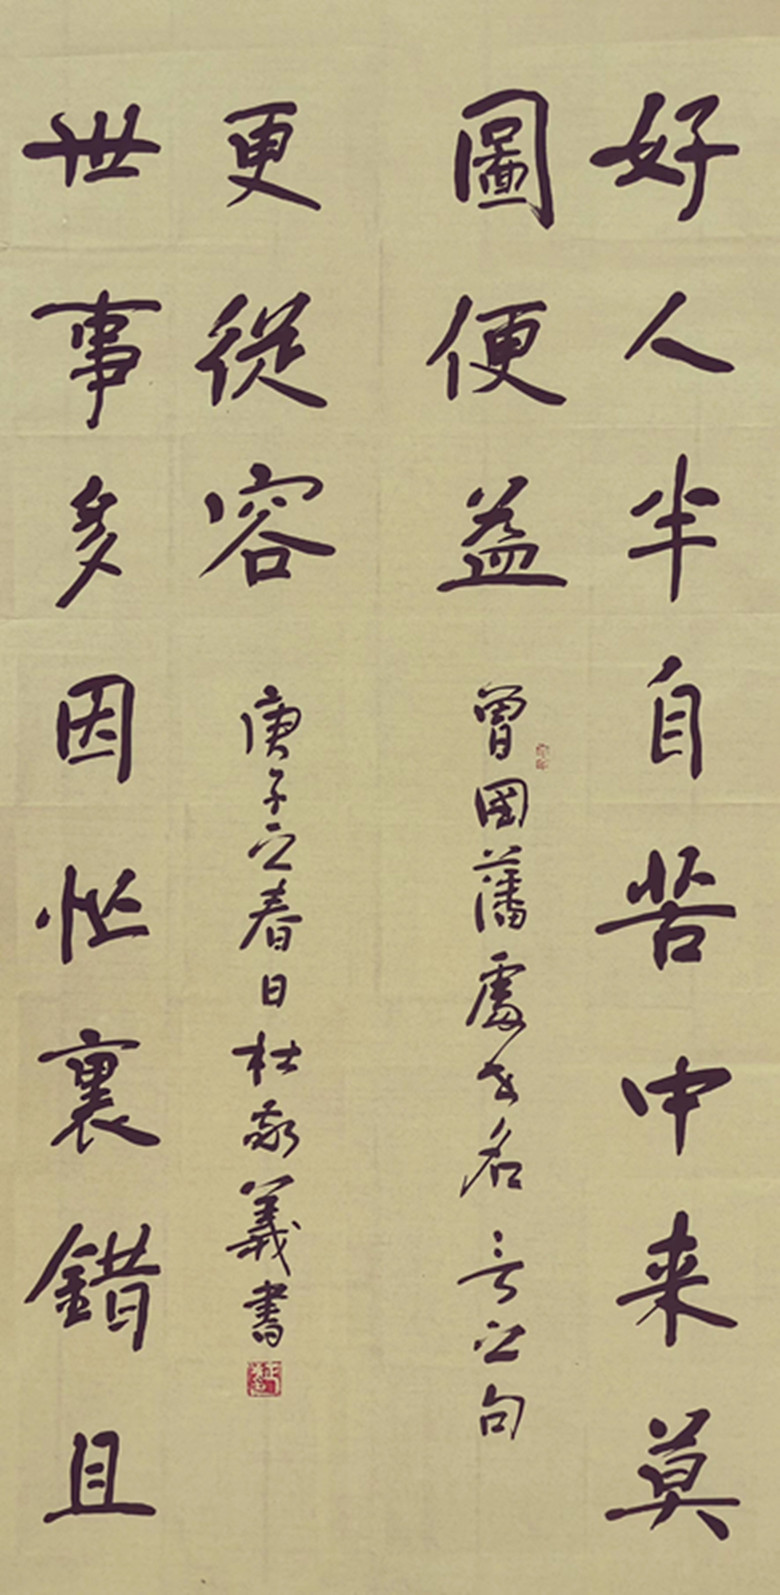 好人半自苦中来莫
圖便益
曾國藩處世名言之句
世事多因忙裏錯且
更從容
庚子之春日杜敬義書